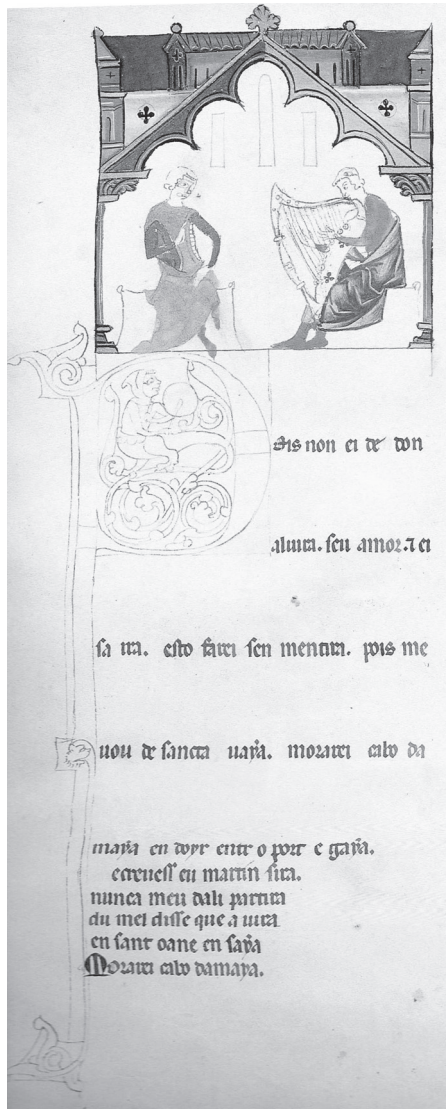 ois non ei de don
aluira. seu amor. ⁊ ei
sa ira. esto farei sen mentira. pois me
uou de sancta uaẏa. morarei cabo da
maẏa en doyr entr o port e gaẏa.
ecreuess eu martin sira.
nunca meu dali partira
du mel disse que a uira
en sant oane en saẏa
Morarei cabo damaẏa.